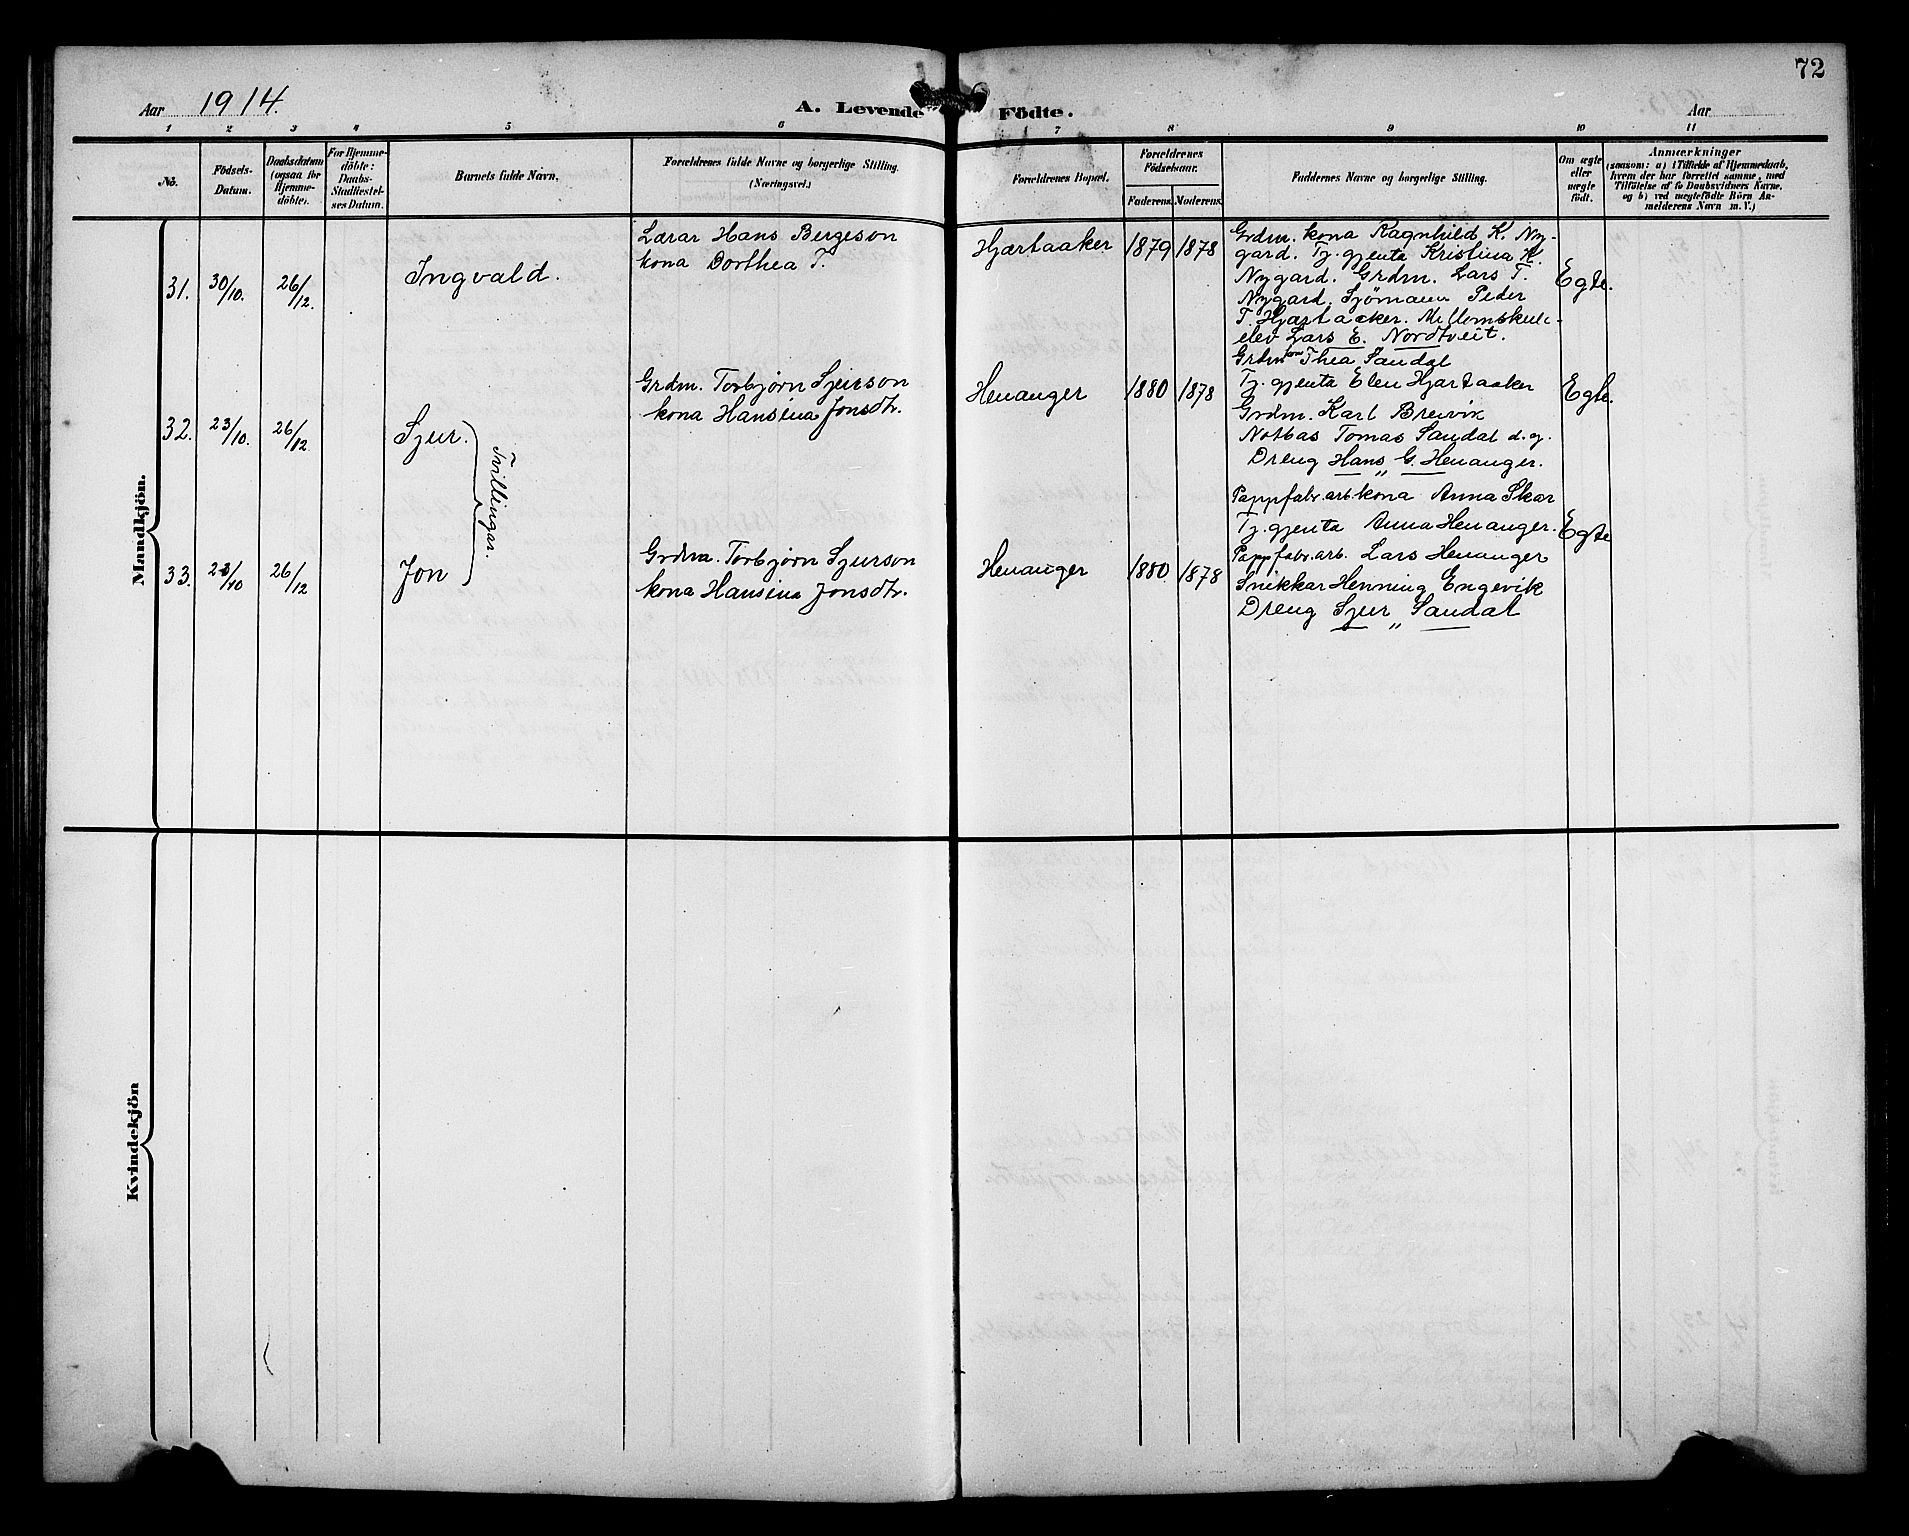 72
Aar 1914.
A. Levende Födte.
Aar
1 2 3 4 5 6 7 8 9 10 11
No.
Födsels-
Datum.
Daabsdatum
(ogsaa for
Hjemme-
döbte).
For Hjemme-
döbte:
Daabs-
Stadfæstel-
ses Datum.
Barnets fulde Navn.
Forældrenes fulde Navne og borgerlige Stilling.
(Næringsvei.)
Forældrenes Bopæl.
Forældrenes
Födselsaar.
Faderens. Moderens.
Faddernes Navne og borgerlige Stilling.
Om ægte
eller
uægte
födt.
Anmærkninger
(saasom: a) i Tilfælde af Hjemmedaab,
hvem der har forrettet samme, med
Tilföielse af to Daabsvidners Navne,
og b) ved uægtefödte Börn An-
melderens Navn m. V.)
Mandkjön.
31. 30/10. 26/12. Ingvald.
Lærar Hans Bergeson
kona Dorthea T.
Hjartaaker 1879 1878
Grdm. kona Ragnhild K. Ny-
gard. Tj. gjenta Kristina K.
Nygard. Grdm. Lars T.
Nygard. Sjömann Peder
T. Hjartaaker. Mellomskule-
elev Lars E. Nordtveit.
Egte.
32. 23/10. 26/12. Sjur.
Tvillingar.
Grdm. Torbjörn Sjurson
kona Hansina Jonsdtr.
Henanger 1880 1878
Grdm.kona Thea Sandal
Tj. gjenta Elen Hjartaaker
Grdm. Karl Breivik
Notbas Tomas Sandal d.y.
Dreng Hans „ G. Henanger.
Egte.
33. 23/10 26/12 Jon
Grdm. Torbjörn Sjurson
kona Hansina Jonsdtr.
Henanger 1880 1878
Pappfabr.arb.kona Anna Skar
Tj. gjenta Anna Henanger.
Pappfabr.arb. Lars Henanger
Snikkar Henning Engevik
Dreng Sjur „ Sandal
Egte
Kvindekjön